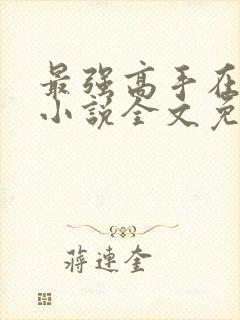 最强高手在
小说全文免
蒋连奎